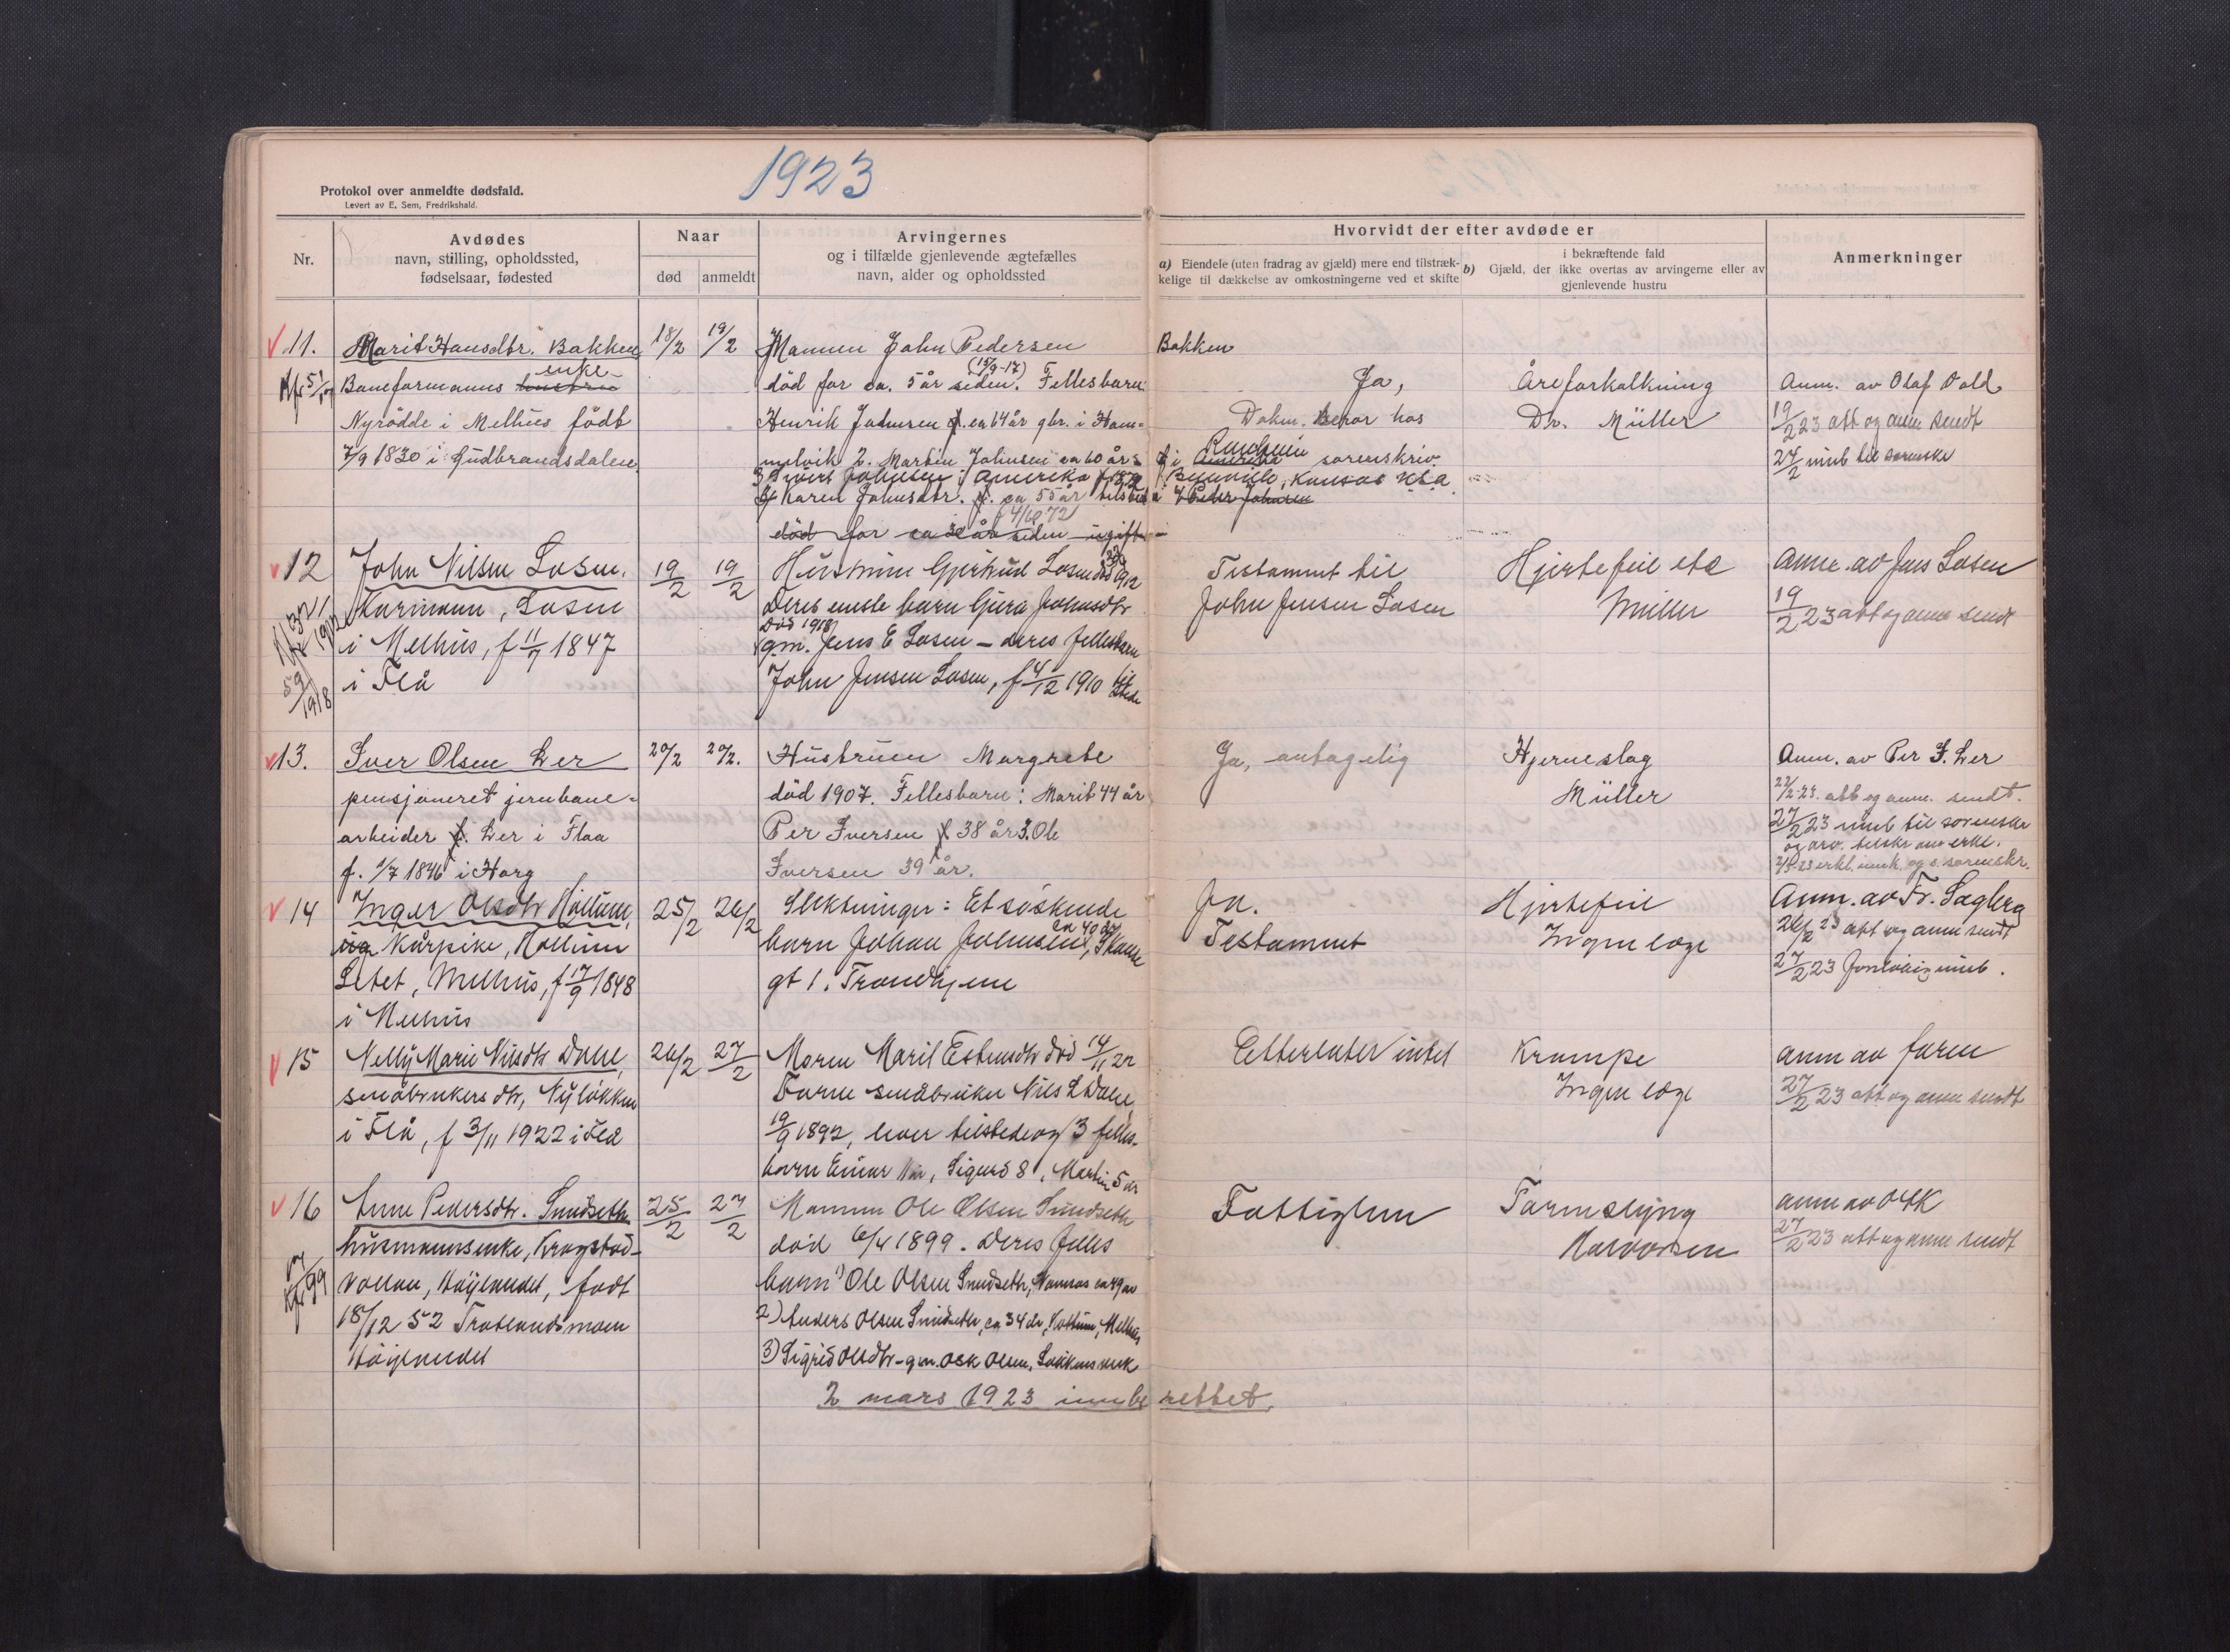 1923
Protokol over anmeldte dødsfald.
Levert av E. Sem, Fredrikshald.
Nr.
Avdødes
navn, stilling, opholdssted,
fødselsaar, fødested
Naar
død
anmeldt
Arvingernes
og i tilfælde gjenlevende ægtefælles
navn, alder og opholdssted
Hvorvidt der efter avdøde er
a) Eiendele (uten fradrag av gjæld) mere end tilstræk-
kelige til dækkelse av omkostningerne ved et skifte
i bekræftende fald
b) Gjæld, der ikke overtas av arvingerne eller av
gjenlevende hustru
Anmerkninger
11.
Marit Hansdtr. Bakken
enke
Baneformanns hustru
Nyrødde i Melhus født
7/9 1830 i Gudbrandsdalen
18/2
19/2
Mannen John Pedersen Bakken
(15/9-17)
død for ca. 5 år siden. Fellesbarn:
Henrik Johnsen f. ca 64 år gbr. i Hom-
melvik 2. Martin Johnsen ca 60 år
3 Sivert Johnsen i Amerika f 1872 Beloville, Kansas U.S.A.
4 Karen Johnsdtr. f. ca 55 år tilstede 4 Peder Johnsen
død for ca 30 år siden ugift
Ja,
Dokm. beror hos
sorenskriv.
Åreforkalkning
Dr. Müller
Anm. av Olaf Vold
19/2 23 att og anm sendt
27/2 innb til sorenskr
12
John Nilsen Losen.
Kårmann, Losen
i Melhus, f 11/7 1847
i Flå
19/2
19/2
Hustruen Gjertrud Losen død
Deres eneste barn Gura Johnsdtr
død 1918
gm. Jens E Losen – deres fellesbarn
John Jensen Losen, f 4/12 1910 til
stede
Testament til
John Jensen Losen
Hjertefeil etc
Müller
Anm. av Jens Losen
19/2 23 att og anm sendt
13.
Iver Olsen Ler
pensjoneret jernbane-
arbeider f. Ler i Flaa
f. 1/7 1846 i Horg
20/2
20/2.
Hustruen Margrete
død 1907. Fellesbarn: Marit 44 år
Per Iversen f 38 år 3. Ole
Iversen 39 år.
Ja, antagelig
Hjerneslag
Müller
Anm. av Per I. Ler
22/2-23. att og anm. sendt.
27/2 23 innb til sorenskr
og arv. tilskr om erkl.
14
Inger Olsdtr Hollum,
ug Kårpike, Hollum
Letet, Melhus, f 17/9 1848
i Melhus
25/2
26/2
Slektninger: Et søskende
ca 40 år
barn Johan Johnsen,
gt 1. Trondhjem
Ja.
Testament
Hjertefeil
Ingen læge
Anm. av Fr. Sagberg
26/2 23 att og anm sendt
27/2 23 foreløbig innb.
15
Nelly Marie Nilsdtr Dahle,
småbrukers dtr, Nyløkken
i Flå, f 3/11 1922 i Flå
26/2
27/2
Moren Marit Estensdtr død 14/11 22
Faren småbruker Nils L Dahle
19/9 1892, lever tilstede og 3 felles-
barn Einar 11 år, Sigurd 8, Martin 5 år
Etterlater intet
Krampe
Ingen læge
anm av faren
27/2 23 att og anm sendt
16
Anne Pedersdtr. Sundseth
husmannsenke, Krogstad-
vollan, Høylandet, født
18/12 52 Tratlandsmoen
Høylandet
25/2
27/2
Mannen Ole Olsen Sundseth
død 6/4 1899. Deres felles
barn 1) Ole Olsen Sundseth, Namsos ca 49 år
2) Anders Olsen Sundseth, ca 34 år, Melhus
3) Sigrid Olsdtr – gm. Osk Olsen, Løkkens verk
Fattiglem
Tarmslyng
Halvorsen
anm av O H K
27/2 23 att og anm sendt
2 mars 1923 innberettet.